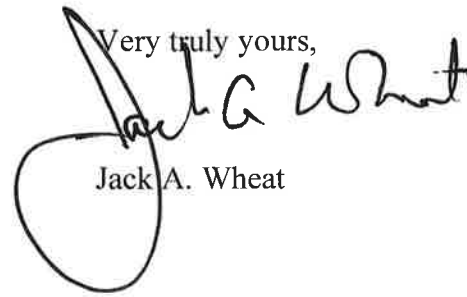 Very truly yours,
Jack A Wheat
Jack A. Wheat